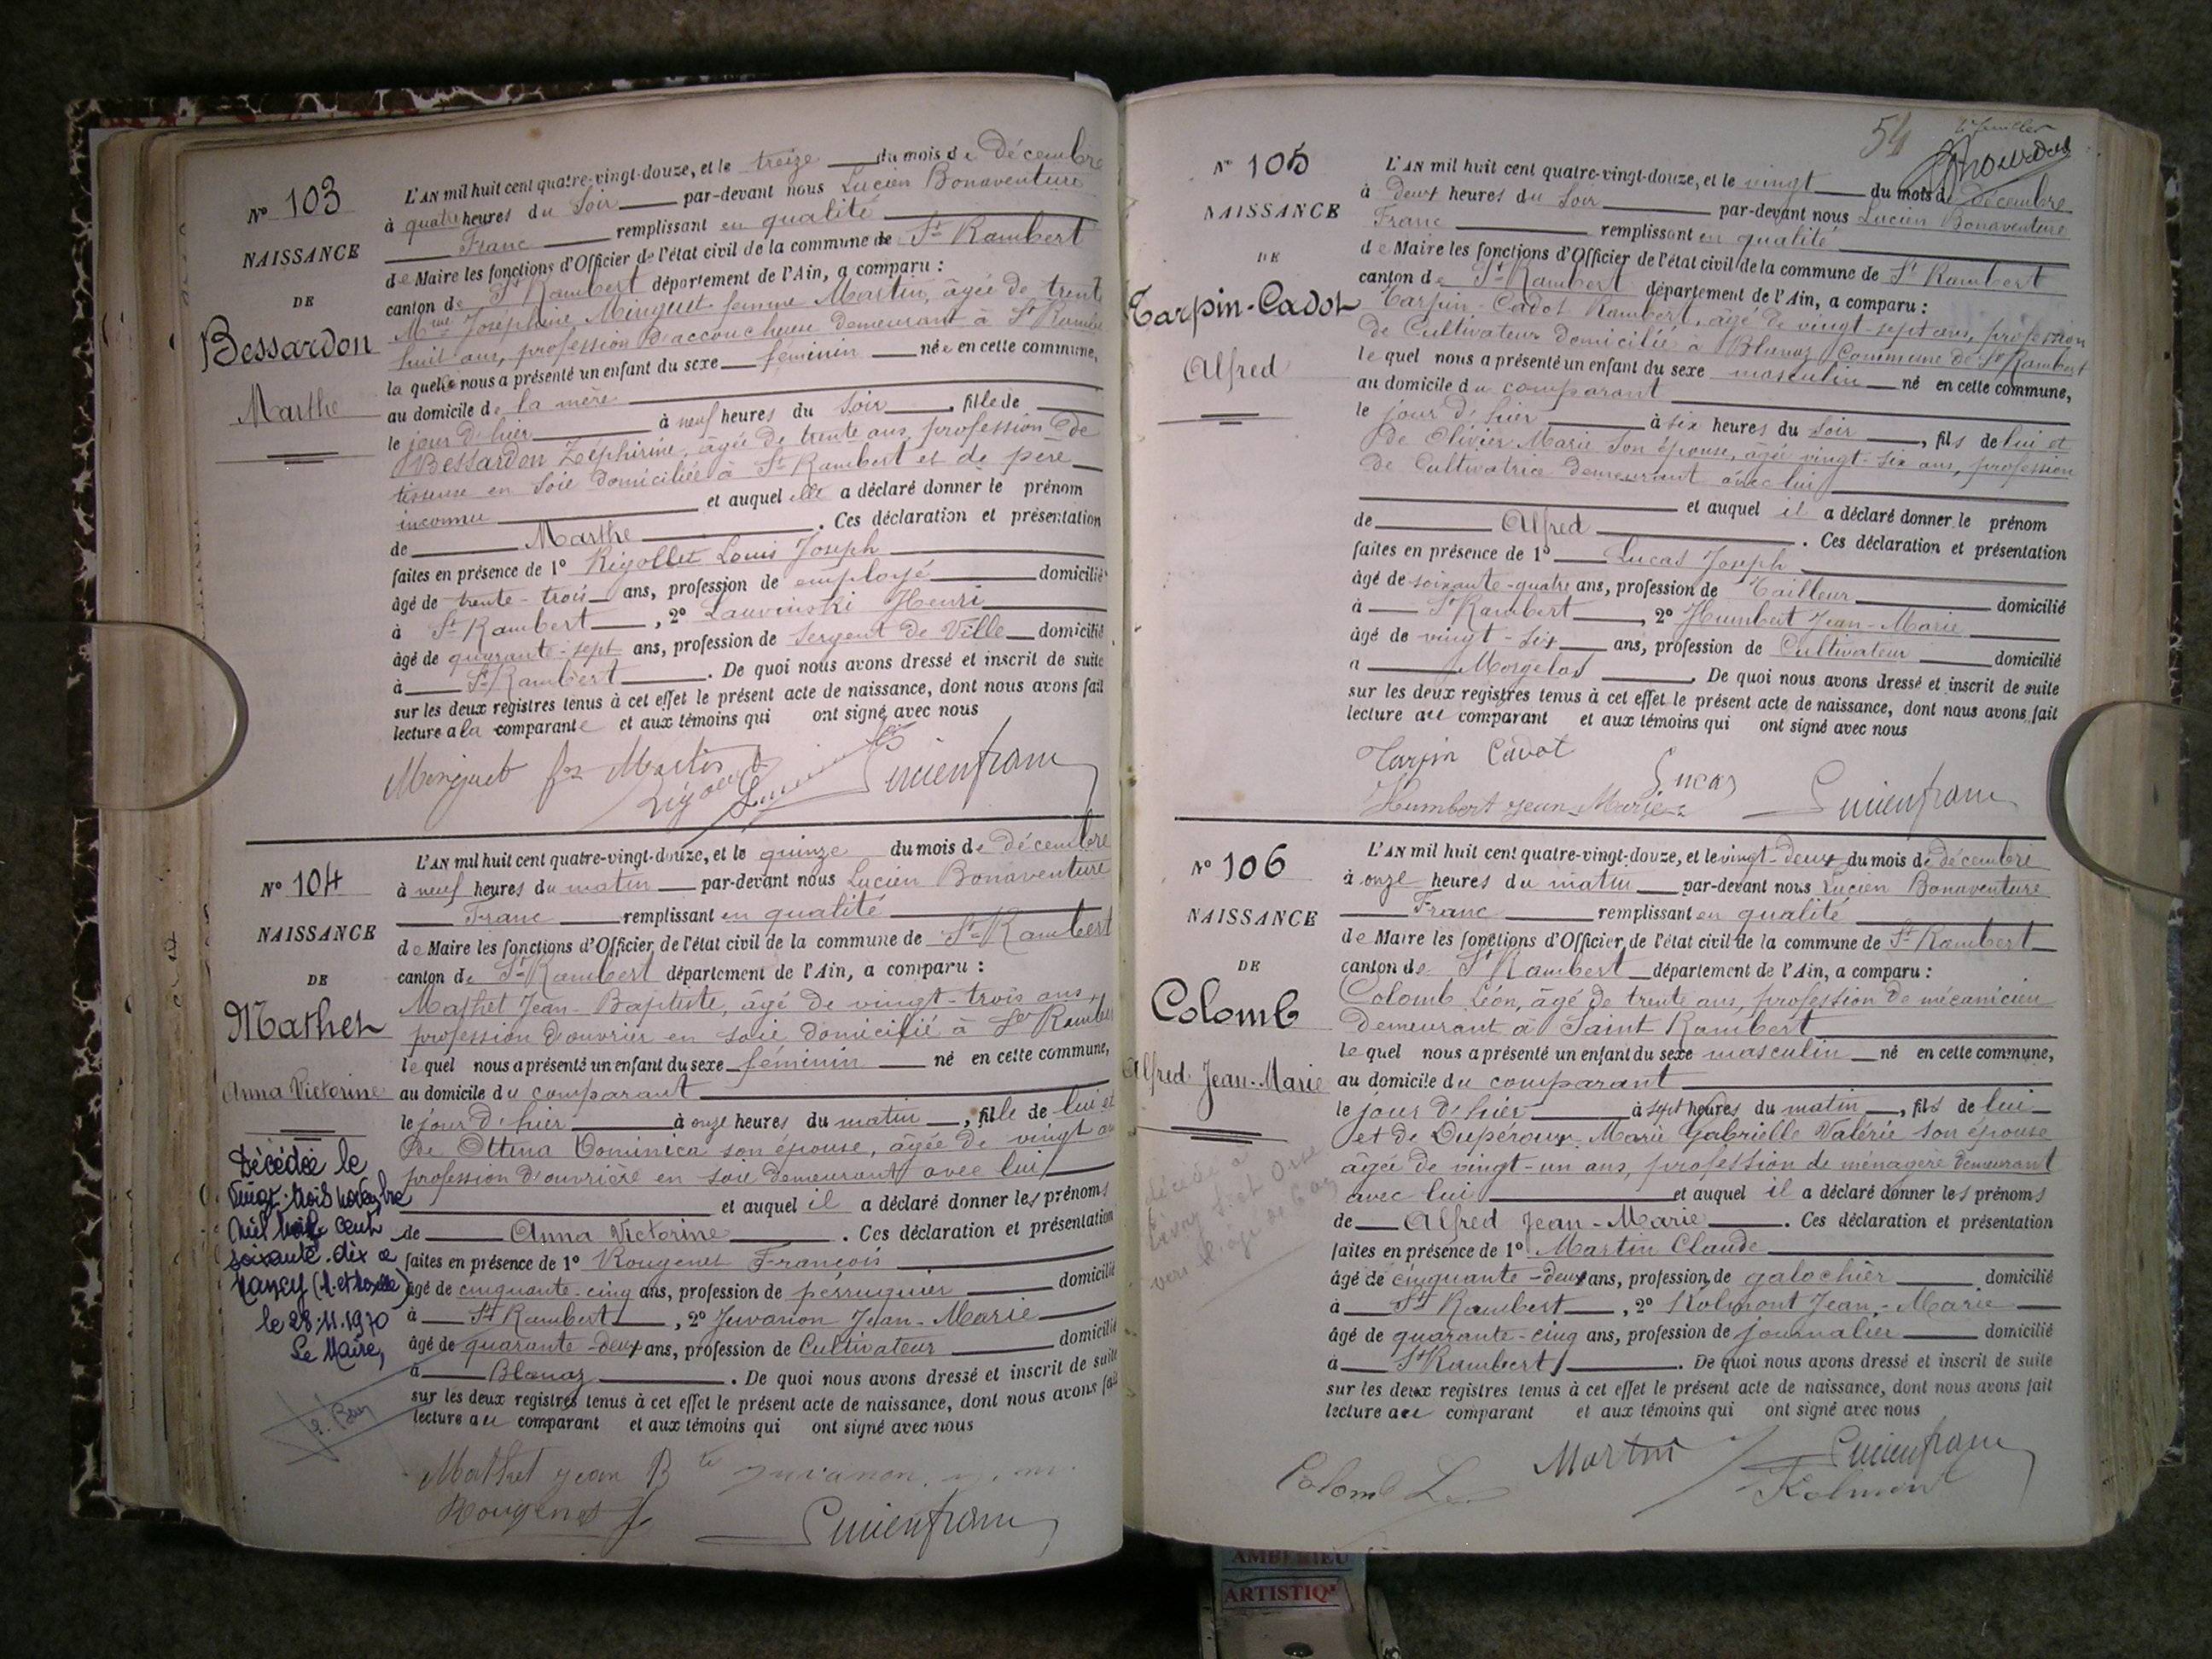 N° 103
NAISSANCE
DE
Bessardon
Marthe
L'AN mil huit cent quatre-vingt-douze, et le treize du mois de Décembre
à quatre heures du Soir par-devant nous Lucien Bonaventure
Franc remplissant en qualité
de Maire les fonctions d'Officier de l'état civil de la commune de St Rambert
canton de St Rambert département de l'Ain, a comparu :
Mme Joséphine Minguet femme Martin, âgée de trente
huit ans, profession d'accoucheuse demeurant à St Rambe
la quelle nous a présenté un enfant du sexe féminin née en cette commune,
au domicile de la mère
le jour d'hier à neuf heures du Soir, fille de
Bessardon Zéphirine, âgée de trente ans, profession de
tisseuse en soie domiciliée à St Rambert et de père
inconnu et auquel elle a déclaré donner le prénom
de Marthe. Ces déclaration et présentation
faites en présence de 1° Rigollet Louis Joseph
âgé de trente-trois ans, profession de employé domicilié
à St Rambert, 2° Lauvinski Henri
âgé de quarante-sept ans, profession de Sergent de Ville domicilié
à St Rambert. De quoi nous avons dressé et inscrit de suite
sur les deux registres tenus à cet effet le présent acte de naissance, dont nous avons fait
lecture à la comparante et aux témoins qui ont signé avec nous
Minguet fe Martin Lucienfranc
N° 104
NAISSANCE
DE
Mathet
Anna Victorine
Décédée le
vingt-trois novembre
mil neuf cent
soixante-dix à
Nancy (M.et Moselle)
le 28.11.1970
Le Maire,
L'AN mil huit cent quatre-vingt-douze, et le quinze du mois de décembre
à neuf heures du matin par-devant nous Lucien Bonaventure
Franc remplissant en qualité
de Maire les fonctions d'Officier de l'état civil de la commune de St Rambert
canton de St Rambert département de l'Ain, a comparu :
Mathet Jean-Baptiste, âgé de vingt-trois ans,
profession d'ouvrier en soie domicilié à St Rambe
le quel nous a présenté un enfant du sexe féminin né en cette commune,
au domicile du comparant
le jour d'hier à onze heures du matin, fille de lui et
de Ottina Dominica son épouse, âgée de vingt an
profession d'ouvrière en soie demeurant avec lui
et auquel il a déclaré donner les prénoms
de Anna Victorine. Ces déclaration et présentation
faites en présence de 1° Rougenet François
âgé de cinquante-cinq ans, profession de perruquier domicilié
à St Rambert, 2° Juvanon Jean-Marie
âgé de quarante-deux ans, profession de Cultivateur domicilié
à Blanaz. De quoi nous avons dressé et inscrit de suite
sur les deux registres tenus à cet effet le présent acte de naissance, dont nous avons fait
lecture au comparant et aux témoins qui ont signé avec nous
Mathet Jean Bte Juvanon
Rougenet f Lucienfranc
54
N° 105
NAISSANCE
DE
Tarpin-Cadot
Alfred
L'AN mil huit cent quatre-vingt-douze, et le vingt du mois de décembre
à deux heures du Soir par-devant nous Lucien Bonaventure
Franc remplissant en qualité
de Maire les fonctions d'Officier de l'état civil de la commune de St Rambert
canton de St Rambert département de l'Ain, a comparu :
Tarpin-Cadot Rambert, âgé de vingt-sept ans, profession
de Cultivateur domicilié à Blanaz Commune de St Rambert
le quel nous a présenté un enfant du sexe masculin né en cette commune,
au domicile du comparant
le jour d'hier à six heures du Soir, fils de lui et
de Olivier Marie son épouse, âgée vingt-six ans, profession
de Cultivatrice demeurant avec lui
et auquel il a déclaré donner le prénom
de Alfred. Ces déclaration et présentation
faites en présence de 1° Lucas Joseph
âgé de soixante-quatre ans, profession de Tailleur domicilié
à St Rambert, 2° Humbert Jean-Marie
âgé de vingt-six ans, profession de Cultivateur domicilié
à Morgelas. De quoi nous avons dressé et inscrit de suite
sur les deux registres tenus à cet effet le présent acte de naissance, dont nous avons fait
lecture au comparant et aux témoins qui ont signé avec nous
Tarpin Cadot Lucas
Humbert Jean-Marie Lucienfranc
N° 106
NAISSANCE
DE
Colomb
Alfred Jean-Marie
L'AN mil huit cent quatre-vingt-douze, et le vingt-deux du mois de décembre
à onze heures du matin par-devant nous Lucien Bonaventure
Franc remplissant en qualité
de Maire les fonctions d'Officier de l'état civil de la commune de St Rambert
canton de St Rambert département de l'Ain, a comparu :
Colomb Léon, âgé de trente ans, profession de mécanicien
demeurant à Saint Rambert
le quel nous a présenté un enfant du sexe masculin né en cette commune,
au domicile du comparant
le jour d'hier à sept heures du matin, fils de lui
et de Dupéroux Marie Gabrielle Valérie son épouse
âgée de vingt-un ans, profession de ménagère demeurant
avec lui et auquel il a déclaré donner les prénoms
de Alfred Jean-Marie. Ces déclaration et présentation
faites en présence de 1° Martin Claude
âgé de cinquante-deux ans, profession de galochier domicilié
à St Rambert, 2° Kolmont Jean-Marie
âgé de quarante-cinq ans, profession de journalier domicilié
à St Rambert. De quoi nous avons dressé et inscrit de suite
sur les deux registres tenus à cet effet le présent acte de naissance, dont nous avons fait
lecture au comparant et aux témoins qui ont signé avec nous
Colomb Martin Lucienfranc
Kolmont
AMBERIEU
ARTISTIQ